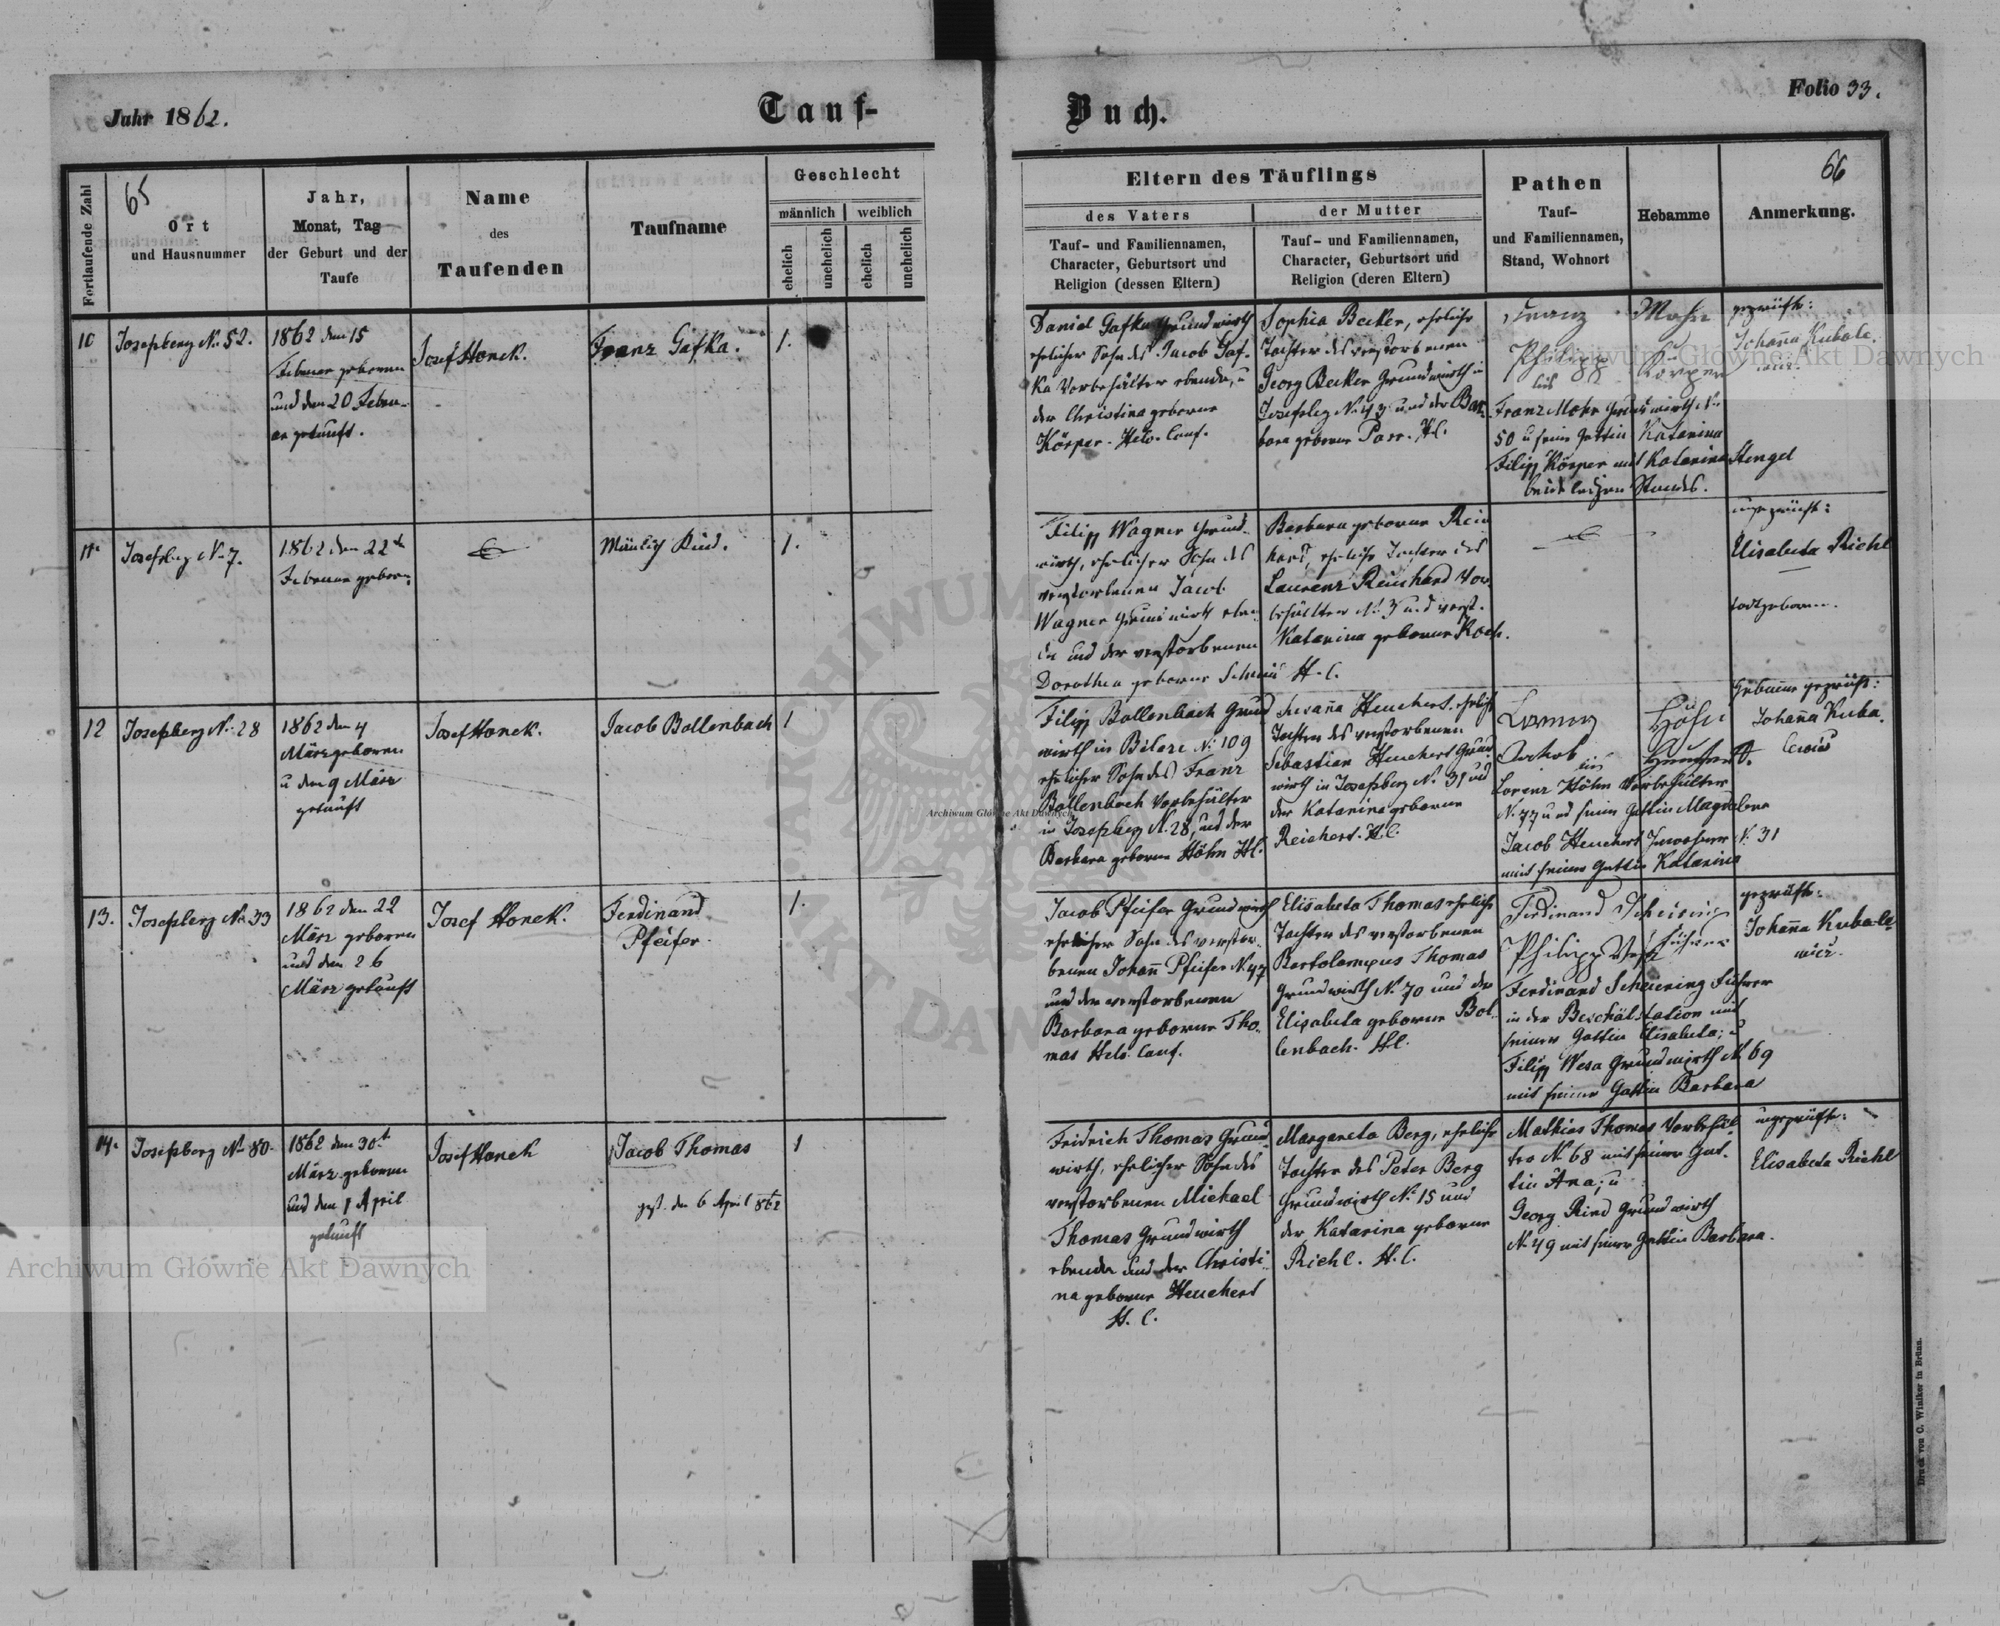 Jahr 1862.
Tauf-
Buch.
Folio 33.
65
66
Fortlaufende Zahl
Ort
und Hausnummer
Jahr,
Monat, Tag
der Geburt und der
Taufe
Name
des
Taufenden
Taufname
Geschlecht
männlich
weiblich
ehelich
unehelich
ehelich
unehelich
Eltern des Täuflings
des Vaters
der Mutter
Tauf- und Familiennamen,
Character, Geburtsort und
Religion (dessen Eltern)
Tauf- und Familiennamen,
Character, Geburtsort und
Religion (deren Eltern)
Pathen
Tauf-
und Familiennamen,
Stand, Wohnort
Hebamme
Anmerkung.
10
Josefsberg No. 52.
1862 den 15
Februar geboren
und den 20 Febru-
ar getauft.
Josef Honek.
Franz Gafka.
1.
Daniel Gafka Grundwirth
ehelicher Sohn des Jacob Gaf-
ka Vorbehälter ebenda, u
der Christina geborne
Körper. Helv. Conf.
Sophia Becker, eheliche
Tochter des verstorbenen
Georg Becker Grundwirth in
Josefsbg No. 43 und der Bar-
bara geborne Parr. H.C.
Franz Mohr
Philipp Körper
Franz Mohr Grundwirth No.
50 u seine Gattin Katarina
Filipp Körper mit Katarina Stengel
beide ledigen Standes.
geprüfte:
Johaña Kubala
wicz.
11.
Josefsbg No. 7.
1862 den 22t
Februar geboren
Mänlich Kind.
1.
Filipp Wagner Grund-
wirth, ehelicher Sohn des
verstorbenen Jacob
Wagner Grundwirth eben-
da und der verstorbenen
Dorothea geborne Schmid H.C.
Barbara geborne Rein
hard, eheliche Tochter des
Laurenz Reinhard Vor-
behälter No. 3 und verst.
Katarina geborne Koch.
ungeprüft:
Elisabeta Riehl
todtgeboren.
12
Josefsberg No. 28
1862 den 4
März geboren
u den 9 März
getauft
Josef Honek.
Jacob Bollenbach
1
Filipp Bollenbach Grund
wirth in No. 109
ehelicher Sohn des Franz
Bollenbach Vorbehälter
in Josefsberg No. 28, und der
Barbara geborne Höhn H.C.
Susaña Heuchert, eheliche
Tochter des verstorbenen
Sebastian Heuchert Grund
wirth in Josefsberg No. 31 und
der Katarina geborne
Reichert. H.C.
Lorenz Höhn
Jakob Heuchert
Lorenz Höhn Vorbehälter
No. 77 und seine Gattin Magdalena
Jacob Heuchert Inwohner No. 31
mit seiner Gattin Katarina
Hebame geprüft:
Johaña Kuba
lewicz
13.
Josefsberg No. 33
1862 den 22
März geboren
und den 26
März getauft
Josef Honek.
Ferdinand
Pfeifer.
1.
Jacob Pfeifer Grundwirth
ehelicher Sohn des verstor-
benen Johann Pfeifer No. 47
und der verstorbenen
Barbara geborne Tho-
mas Helv. Conf.
Elisabeta Thomas eheliche
Tochter des verstorbenen
Bartolomeus Thomas
Grundwirth No. 70 und der
Elisabeta geborne Bol-
lenbach. H.C.
Ferdinand Scheiring
Führer
Philipp Wesa
Ferdinand Scheiring Führer
in der Beschälstation mit
seiner Gattin Elisabeta; u
Filipp Wesa Grundwirth No. 69
mit seiner Gattin Barbara
geprüfte:
Johaña Kubala
wicz.
14.
Josefsberg No. 80.
1862 den 30t
März geboren
und den 1 April
getauft
Josef Honek
Jacob Thomas
gest. den 6 April 862
1
Fridrich Thomas Grund-
wirth, ehelicher Sohn des
verstorbenen Michael
Thomas Grundwirth
ebenda und der Christi-
na geborne Heuchert
H.C.
Margareta Berg, eheliche
Tochter des Peter Berg
Grundwirth No. 15 und
der Katarina geborne
Riehl. H.C.
Mathias Thomas Vorbehäl-
ter No. 68 mit seiner Gat-
tin Ana; u
Georg Rind Grundwirth
No. 49 mit seiner Gattin Barbara.
ungeprüfte:
Elisabeta Riehl
Druck von C. Winiker in Brünn.
Archiwum Główne Akt Dawnych
Archiwum Główne Akt Dawnych
Archiwum Główne Akt Dawnych
ARCHIWUM
AKT DAWNYCH